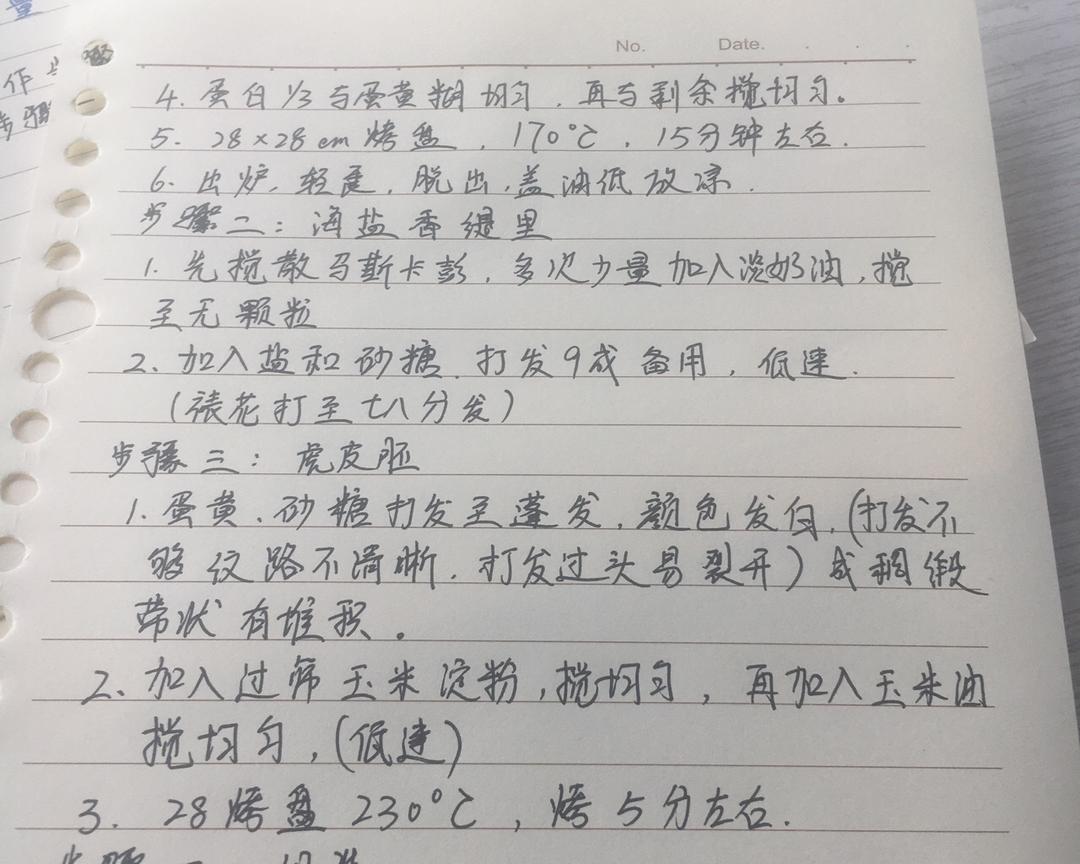 No. Date.
4. 蛋白1/3与蛋黄糊均匀，再与剩余搅均匀。
5. 28×28cm烤盘，170℃，15分钟左右.
6. 出炉，轻震，脱出，盖油低放凉.
步骤二：海盐香缇里
1. 先搅散马斯卡彭，多次少量加入淡奶油，搅
至无颗粒
2. 加入盐和砂糖，打发9成备用，低速.
（裱花打至七八分发）
步骤三：虎皮胚
1. 蛋黄、砂糖打发至蓬发，颜色发白，（打发不
够纹路不清晰，打发过头易裂开）成稠缎
带状有堆积。
2、加入过筛玉米淀粉，搅均匀，再加入玉米油
搅均匀，（低速）
3. 28烤盘230℃，烤5分左右.
量
作
步骤